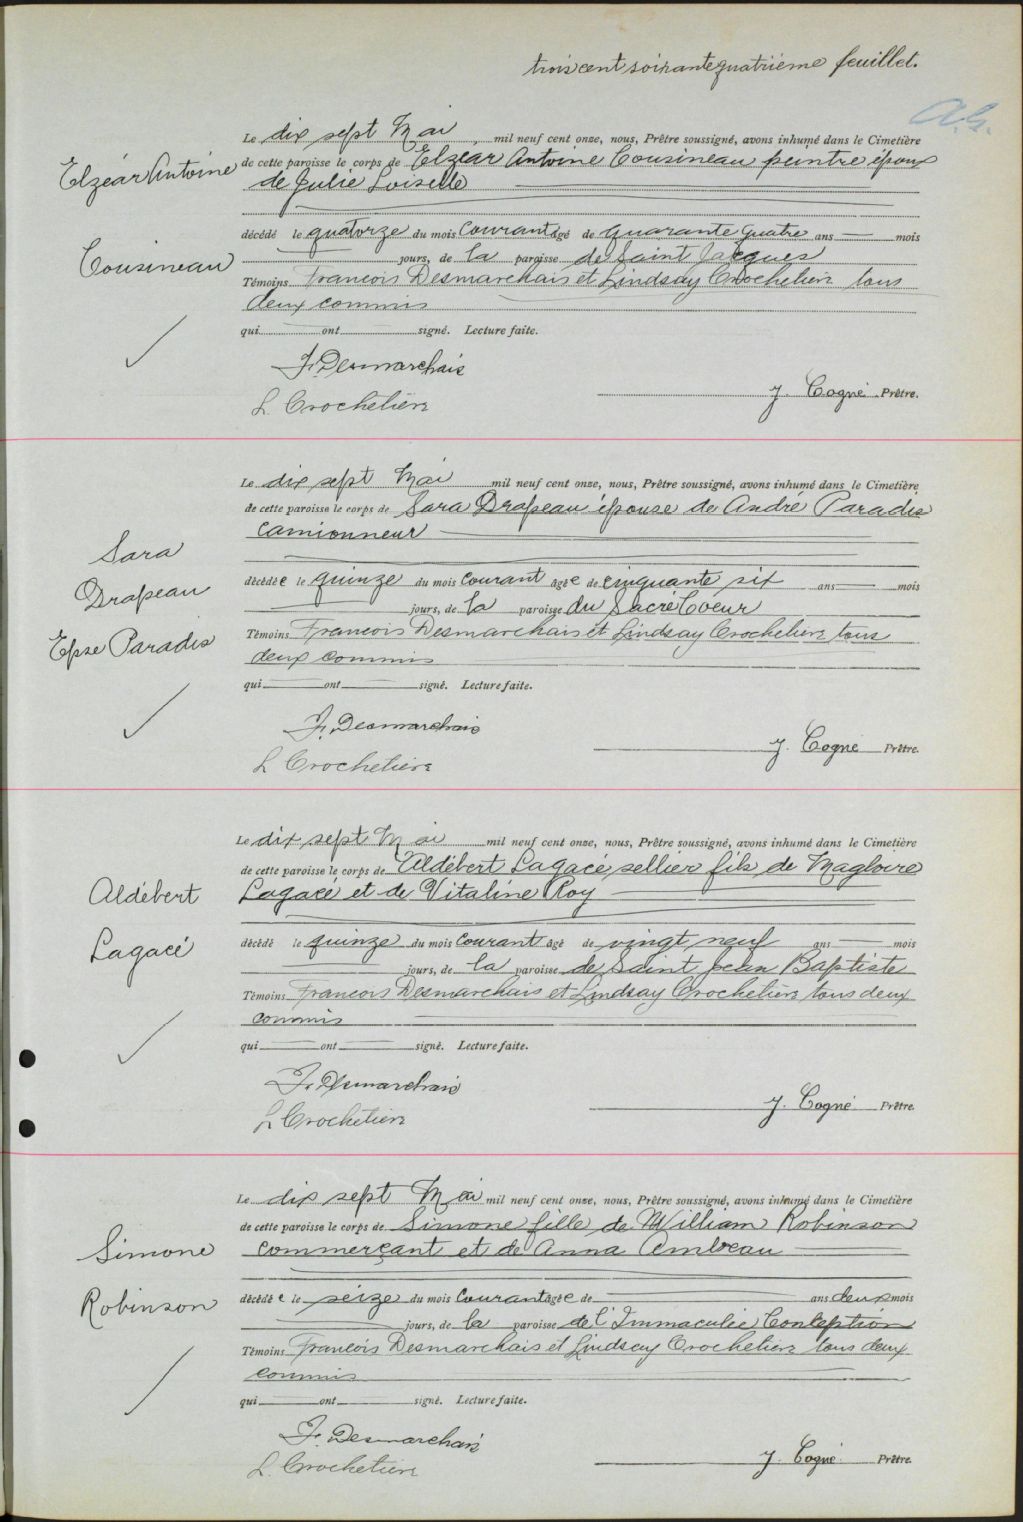 trois cent soixante quatrième feuillet.
A.G.
Le dix sept Mai mil neuf cent onze, nous, Prêtre soussigné, avons inhumé dans le Cimetière
Elzéar Antoine
de cette paroisse le corps de Elzéar Antoine Cousineau peintre époux
de Julie Loiselle
décédé le quatorze du mois courant âgé de quarante quatre ans mois
Cousineau
jours, de la paroisse de Saint Jacques
Témoins Francois Desmarchais et Lindsay Crochetière tous
deux commis
qui ont signé. Lecture faite.
F. Desmarchais
J. Cogné Prêtre.
L Crochetière
Le dix sept Mai mil neuf cent onze, nous, Prêtre soussigné, avons inhumé dans le Cimetière
de cette paroisse le corps de Sara Drapeau épouse de André Paradis
camionneur
Sara
Drapeau
décédée le quinze du mois courant âgée de cinquante six ans mois
jours, de la paroisse du Sacré Coeur
Epse Paradis
Témoins Francois Desmarchais et Lindsay Crochetière tous
deux commis
qui ont signé. Lecture faite.
F. Desmarchais
J. Cogné Prêtre.
L Crochetière
Le dix sept Mai mil neuf cent onze, nous, Prêtre soussigné, avons inhumé dans le Cimetière
de cette paroisse le corps de Aldébert Lagacé, sellier fils de Magloire
Aldébert
Lagacé et de Vitaline Roy
Lagacé
décédé le quinze du mois courant âgé de vingt neuf ans mois
jours, de la paroisse de Saint Jean Baptiste
Témoins Francois Desmarchais et Lindsay Crochetière tous deux
commis
qui ont signé. Lecture faite.
F. Desmarchais
J. Cogné Prêtre.
L Crochetière
Le dix sept Mai mil neuf cent onze, nous, Prêtre soussigné, avons inhumé dans le Cimetière
de cette paroisse le corps de Simone fille de William Robinson
Simone
commerçant et de Anna Ambeau
Robinson
décédée le seize du mois courant âgée de ans deux mois
jours, de la paroisse de l'Immaculée Conception
Témoins Francois Desmarchais et Lindsay Crochetière tous deux
commis
qui ont signé. Lecture faite.
F. Desmarchais
J. Cogné Prêtre.
L. Crochetière